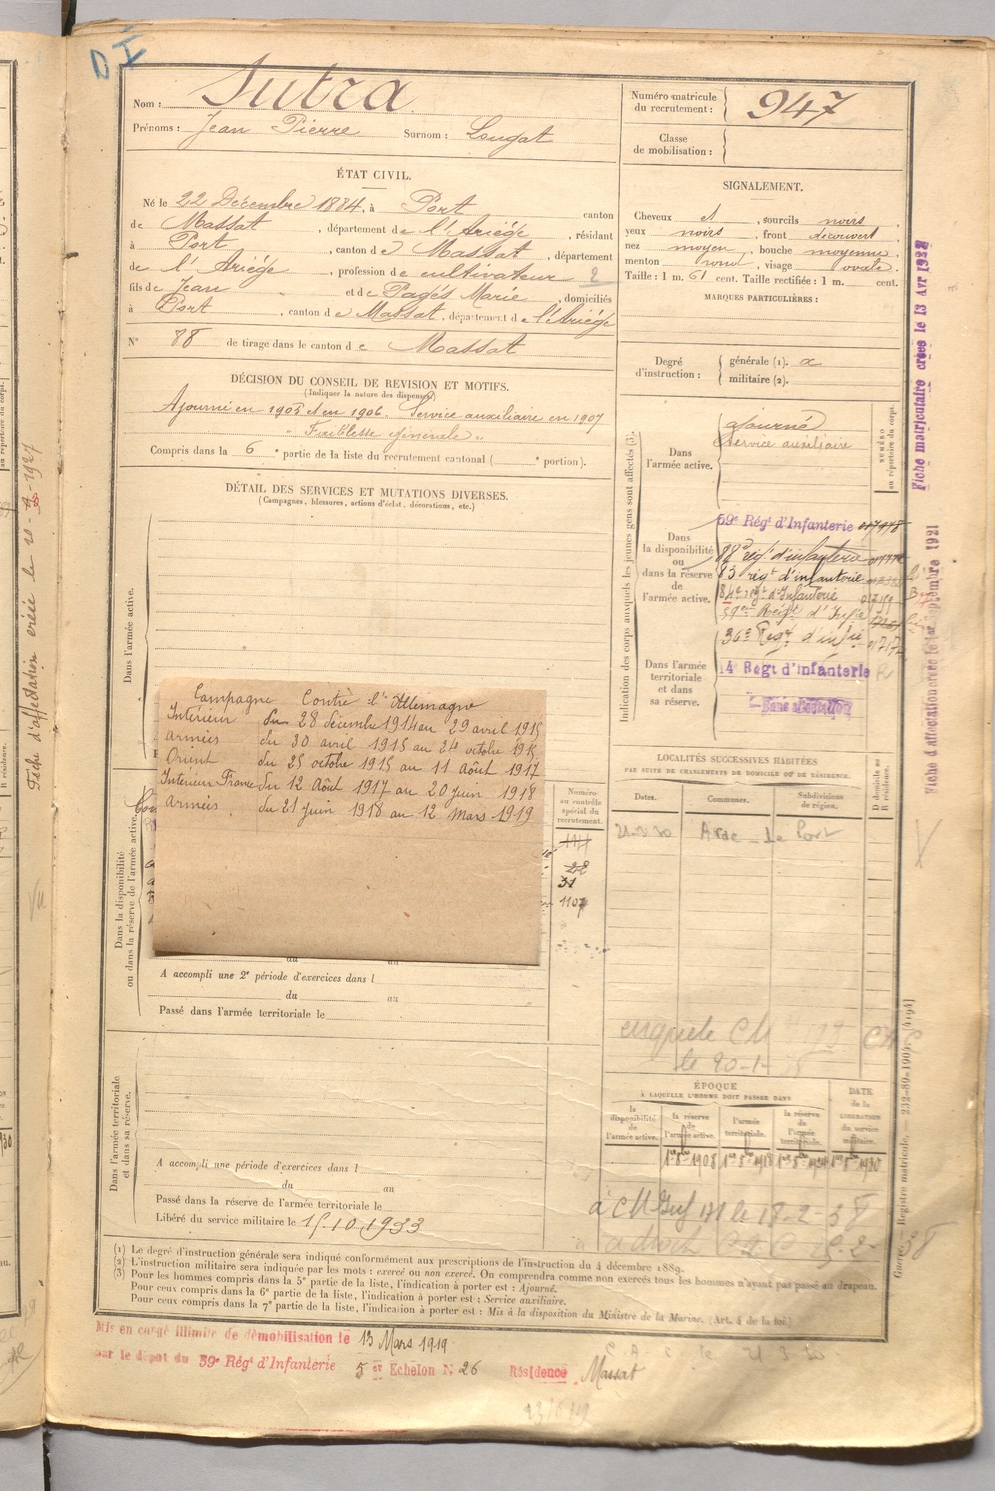 D I
Nom : Sutra
Prénoms : Jean Pierre Surnom : Lougat
Numéro matricule du recrutement : 947
Classe de mobilisation :
ÉTAT CIVIL.
Né le 22 Décembre 1884, à Port canton
de Massat, département de l'Ariége, résidant
à Port, canton de Massat, département
de l'Ariége, profession de cultivateur 2
fils de Jean et de Pagés Marie, domiciliés
à Port, canton de Massat, département de l'Ariége
N° 88 de tirage dans le canton de Massat
SIGNALEMENT.
Cheveux et, sourcils noirs
yeux noirs, front découvert
nez moyen, bouche moyenne,
menton rond, visage ovale.
Taille : 1 m. 61 cent. Taille rectifiée : 1 m. cent.
MARQUES PARTICULIÈRES :
Degré d'instruction : générale (1). x
militaire (2).
DÉCISION DU CONSEIL DE REVISION ET MOTIFS.
(Indiquer la nature des dispenses)
Ajourné en 1905 et en 1906. Service auxiliaire en 1907
" Faiblesse générale "
Compris dans la 6e partie de la liste du recrutement cantonal ( e portion).
DÉTAIL DES SERVICES ET MUTATIONS DIVERSES.
(Campagnes, blessures, actions d'éclat, décorations, etc.)
Dans l'armée active.
Indication des corps auxquels les jeunes gens sont affectés (3).
NUMÉRO au répertoire du corps.
Dans l'armée active.
Ajourné
Service auxiliaire
Dans la disponibilité ou dans la réserve de l'armée active.
59e Régt d'Infanterie
88e régt d'infanterie
83 régt d'infanterie
84e régt d'Infanterie
59e Regt d'Infie
36e Regt d'infie
Dans l'armée territoriale et dans sa réserve.
14e Regt d'infanterie
Sans affectation
Campagne Contre l'Allemagne
Intérieur du 28 décembre 1914 au 29 avril 1915
armées du 30 avril 1915 au 24 octobre 1915
Orient du 25 octobre 1915 au 11 Août 1917
Intérieur France du 12 Août 1917 au 20 juin 1918
armées du 21 juin 1918 au 12 mars 1919
Dans la disponibilité ou dans la réserve de l'armée active.
Numéro au contrôle spécial du recrutement.
31
1107
du au
A accompli une 2e période d'exercices dans l
du au
Passé dans l'armée territoriale le
LOCALITÉS SUCCESSIVES HABITÉES
PAR SUITE DE CHANGEMENTS DE DOMICILE OU DE RÉSIDENCE.
Dates. Communes. Subdivisions de région. D domicile ou R résidence.
Arac - Le Port
enquête CM
le 20-1-
ÉPOQUE
À LAQUELLE L'HOMME DOIT PASSER DANS
la disponibilité de l'armée active. la réserve de l'armée active. l'armée territoriale. la réserve de l'armée territoriale. DATE de la LIBÉRATION du service militaire.
Dans l'armée territoriale et dans sa réserve.
A accompli une période d'exercices dans l
du au
Passé dans la réserve de l'armée territoriale le
Libéré du service militaire le 15.10.1933
(1) Le degré d'instruction générale sera indiqué conformément aux prescriptions de l'instruction du 4 décembre 1889.
(2) L'instruction militaire sera indiquée par les mots : exercé ou non exercé. On comprendra comme non exercés tous les hommes n'ayant pas passé au drapeau.
(3) Pour les hommes compris dans la 5e partie de la liste, l'indication à porter est : Ajourné.
Pour ceux compris dans la 6e partie de la liste, l'indication à porter est : Service auxiliaire.
Pour ceux compris dans la 7e partie de la liste, l'indication à porter est : Mis à la disposition du Ministre de la Marine. (Art. 4 de la loi.)
Mis en congé illimité de démobilisation le 13 Mars 1919
par le dépot du 59e Régt d'Infanterie 5 er Echelon N° 26 Résidence Massat
Fiche matriculaire créée le 13 Avr 1928
Fiche d'affectation créée le 1er septembre 1921
Guerre. — Registre matricule. — 232-89-1904. [4194]
Fiche d'affectation créée le
Vu